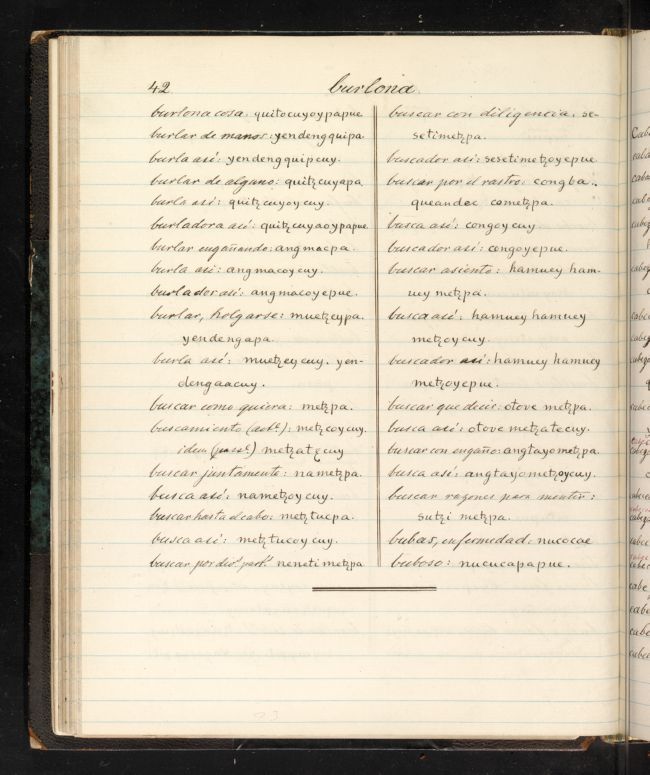 42
burlona
burlona cosa: quitocuyoypapue
burlar de manos: yendengquipa.
burla asi: yendengquipcuy.
burlar de alguno: quitꜩcuyapa
burla asi: quitꜩcuyoycuy.
burladora asi: quitꜩcuyaoypapue
burlar engañando: angmacpa.
burla asi: angmacoycuy.
burlador asi: angmacoyepue.
burlar, holgarse: muetꜩcypa.
yendengapa.
burla asi: muetꜩeycuy. yen-
dengaacuy.
buscar como quiera: metꜩpa.
buscamiento (act.ᵉ): metꜩcoycuy.
idem (pass.ᵉ) metꜩatecuy
buscar juntamente: nametꜩpa.
busca asi: nametꜩoycuy.
buscar hasta el cabo: metꜩtucpa.
busca asi: metꜩtucoycuy.
buscar por div.ˢ part.ˢ nenetimetꜩpa
buscar con diligencia. se-
setimetꜩpa.
buscador asi: sesetimetꜩoyepue
buscar por el rastro: congba..
queandec cometꜩpa.
busca asi: congoycuy.
buscador asi: congoyepue.
buscar asiento: hamucy ham-
ucy metꜩpa.
busca asi: hamucy hamucy
metꜩoycuy.
buscador asi: hamucy hamucy
metꜩoyepue.
buscar que decir: otove metꜩpa.
busca asi: otove metꜩatecuy.
buscar con engaño: angtayometꜩpa.
busca asi: angtayometꜩoycuy.
buscar razones para mentir:
sutꜩi metꜩpa.
bubas, enfermedad: nucocae
buboso: nucucapapue.